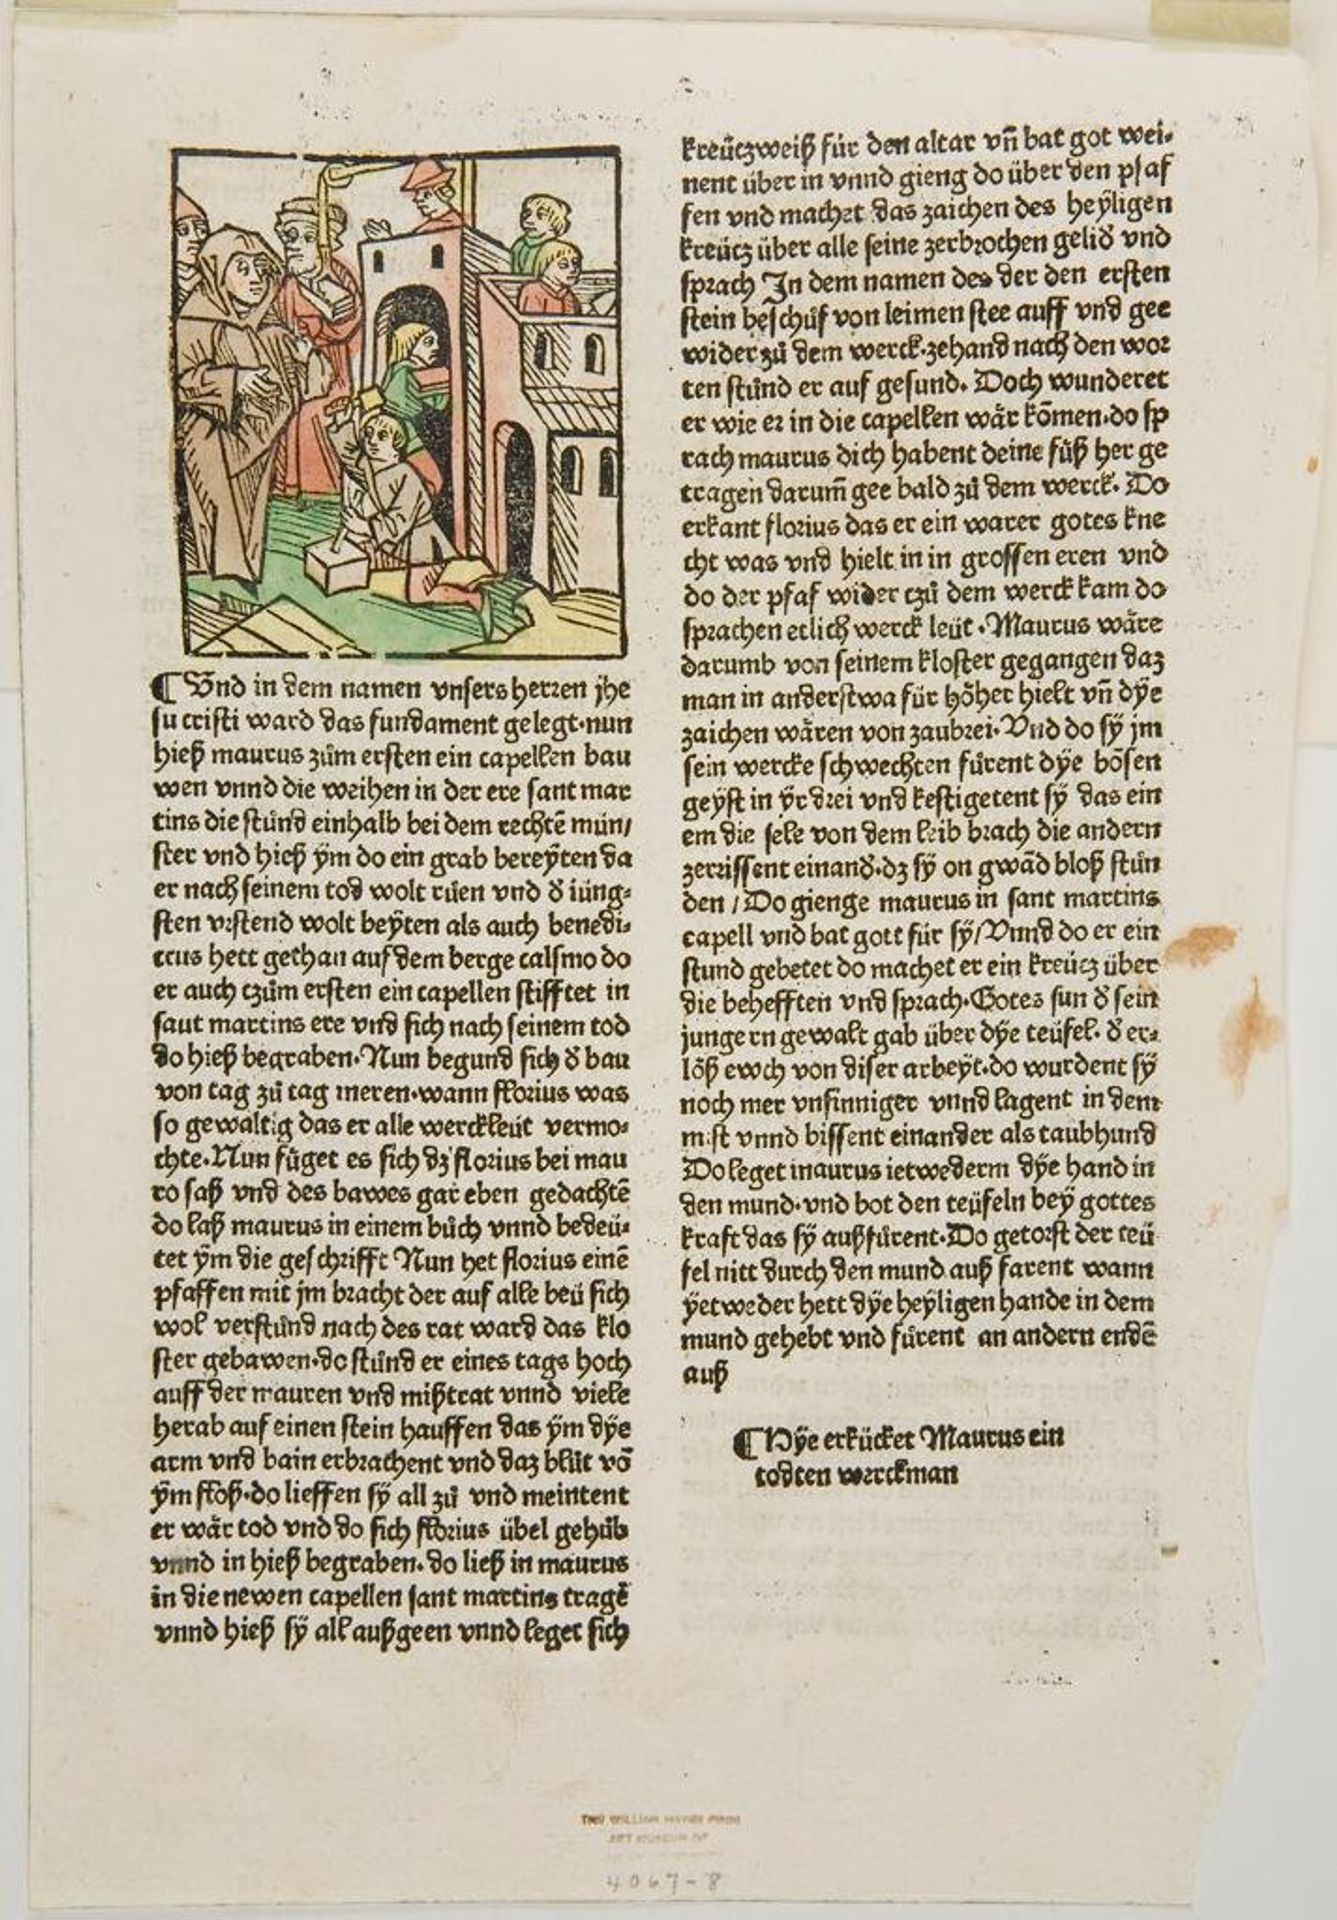 ¶ Vnd in dem namen vnsers herren jhe
su cristi ward das fundament gelegt·nun
hieß maurus zům ersten ein capellen bau
wen vnnd die weihen in der ere sant mar
tins die stůnd einhalb bei dem rechtē mün/
ster vnd hieß ÿm do ein grab bereÿten da
er nach seinem tod wolt růen vnd ð iüng⸗
sten vrstend wolt beÿten als auch benedi⸗
ctus hett gethan auf dem berge calsmo do
er auch czům ersten ein capellen stifftet in
saut martins ere vnd sich nach seinem tod
do hieß begraben·Nun begund sich ð bau
von tag zů tag meren·wann florius was
so gewaltig das er alle werckleüt vermo⸗
chte·Nun füget es sich dz florius bei mau
ro saß vnd des bawes gar eben gedachtē
do laß maurus in einem bůch vnnd bedeü⸗
tet ÿm die geschrifft Nun het florius einē
pfaffen mit jm bracht der auf alle beü sich
wol verstůnd nach des rat ward das klo
ster gebawen·do stůnd er eines tags hoch
auff der mauren vnd mißtrat vnnd viele
herab auf einen stein hauffen das ÿm dÿe
arm vnd bain erbrachent vnd daz blůt vō
ÿm floß·do lieffen sÿ all zů vnd meintent
er wär tod vnd do sich florius übel gehůb
vnnd in hieß begraben·do ließ in maurus
in die newen capellen sant martins tragē
vnnd hieß sÿ all außgeen vnnd leget sich
kreützweiß für den altar vn̄ bat got wei⸗
nent über in vnnd gieng do über den pfaf
fen vnd machet das zaichen des heÿligen
kreütz über alle seine zerbrochen gelið vnd
sprach In dem namen des der den ersten
stein beschůf von leimen stee auff vnd gee
wider zů dem werck·zehand nach den wor
ten stůnd er auf gesund. Doch wunderet
er wie er in die capellen wär kōmen·do sp
rach maurus dich habent deine füß her ge
tragen darum̄ gee bald zů dem werck. Do
erkant florius das er ein warer gotes kne
cht was vnd hielt in in grossen eren vnd
do der pfaf wider czů dem werck kam do
sprachen etlich werck leüt·Maurus wäre
darumb von seinem kloster gegangen daz
man in anderstwa für höher hielt vn̄ dÿe
zaichen wären von zaubrei·Vnd do sÿ jm
sein wercke schwechten fůrent dÿe bösen
geÿst in ÿr drei vnd kestigetent sÿ das ein
em die sele von dem leib brach die andern
zerrissent einanð·dz sÿ on gwād bloß stůn
den / Do gienge maurus in sant martins
capell vnd bat gott für sÿ/Vnnd do er ein
stund gebetet do machet er ein kreütz über
die behefften vnd sprach·Gotes sun ð sein
jungern gewalt gab über dÿe teüfel. ð er⸗
löß ewch von diser arbeÿt·do wurdent sÿ
noch mer vnsinniger vnnd lagent in dem
mist vnnd bissent einander als taubhund
Do leget maurus ietwederm dÿe hand in
den mund·vnd bot den teüfeln beÿ gottes
kraft das sÿ außfůrent·Do getorst der teü
fel nitt durch den mund auß farent wann
ÿetweder hett dÿe heÿligen hande in dem
mund gehebt vnd fůrent an andern endē
auß
¶ Hÿe erkücket Maurus ein
todten werckman
4067-8